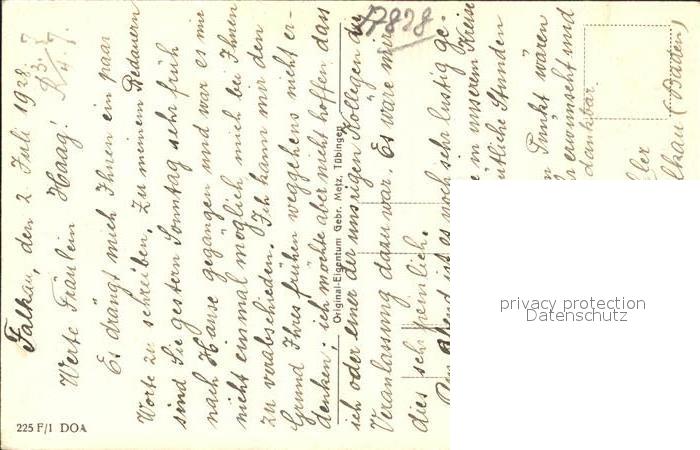 Falkau, den 2. Juli 1928.
Werte Fräulein Haag!
Es drängt mich Ihnen ein paar
Worte zu schreiben. Zu meinem Bedauern
sind Sie gestern Sonntag sehr früh
nach Hause gegangen und war es mir
nicht einmal möglich mich bei Ihnen
zu verabschieden. Ich kann mir den
Grund Ihres frühen weggehens nicht er-
denken; ich möchte aber nicht hoffen, dass
ich oder einer der unsrigen Kollegen die
Veranlassung dazu war. Es wäre mir
dies sehr peinlich.
Abend ist es noch sehr lustig ge-
in unserem Kreise
Stunden
Punkt wären
erwünscht und
dankbar.
lkau (Baden)
Original-Eigentum Gebr. Metz, Tübingen
225 F/1 DOA
privacy protection
Datenschutz